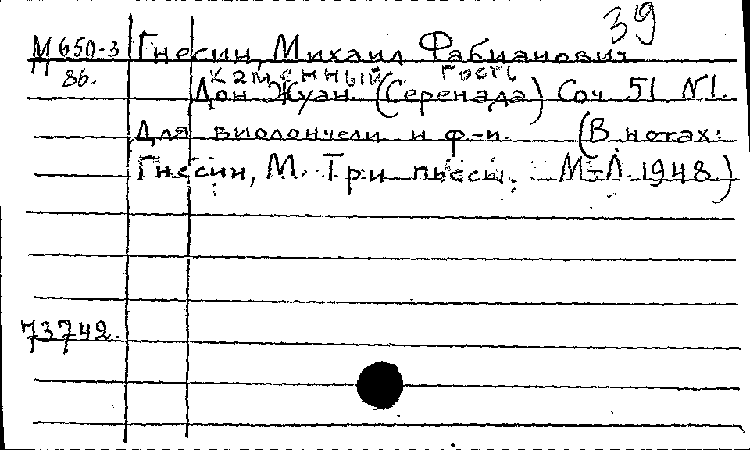 39
М 650-3 Гнесин, Михаил Фабианович
86. Каменный гость
Дон Жуан (Серенада) Соч. 51 №1.
Для виолончели и ф-п. (В нотах:
Гнесин, М. Три пьесы. М-Л. 1948)
73742.